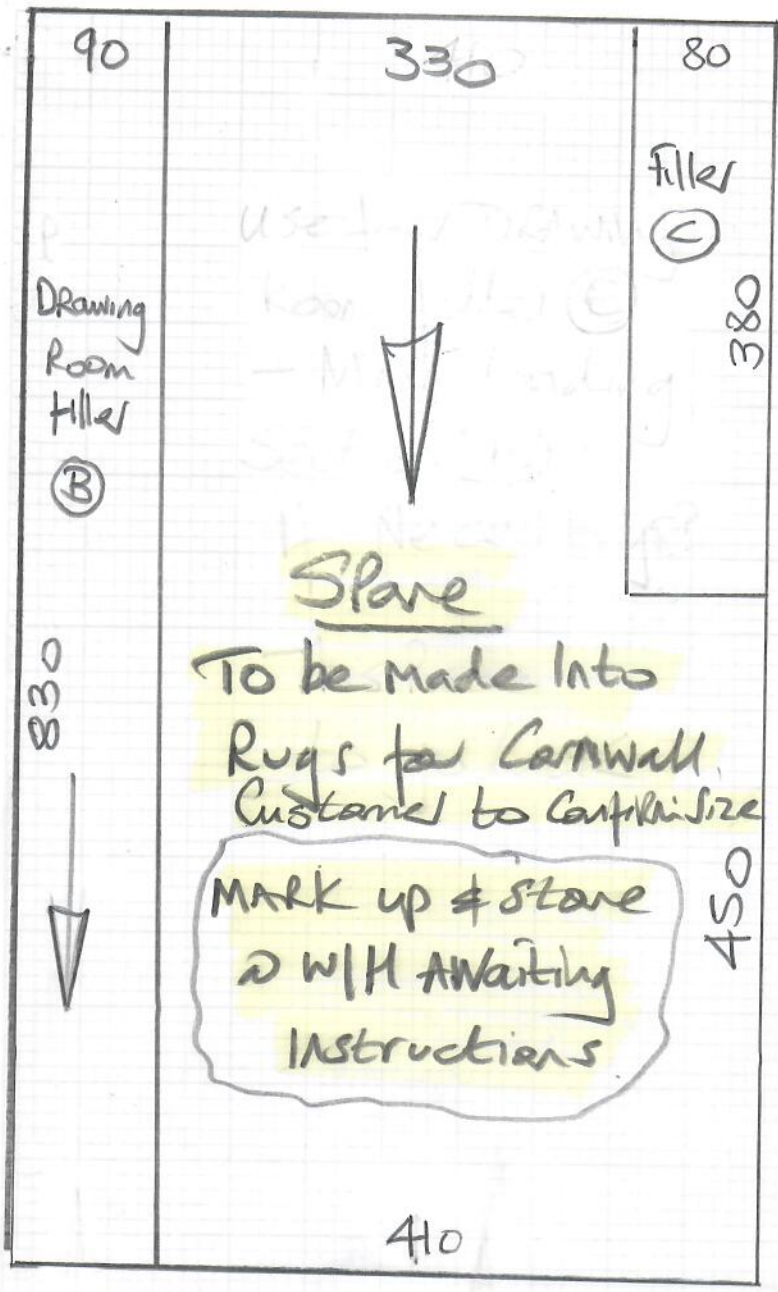 90
330
80
Filler
C
380
Drawing
Room
Filler
B
830
Spare
To be Made Into
Rugs for Cornwall.
Customer to Confirm Size
MARK up & Store
@ W/H Awaiting
Instructions
450
410